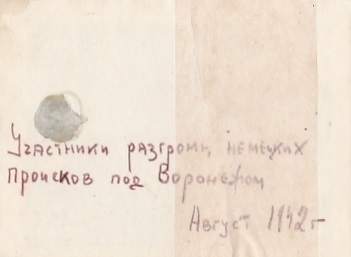 Участники разгрома немецких
происков под Воронежом
Август 1942 г